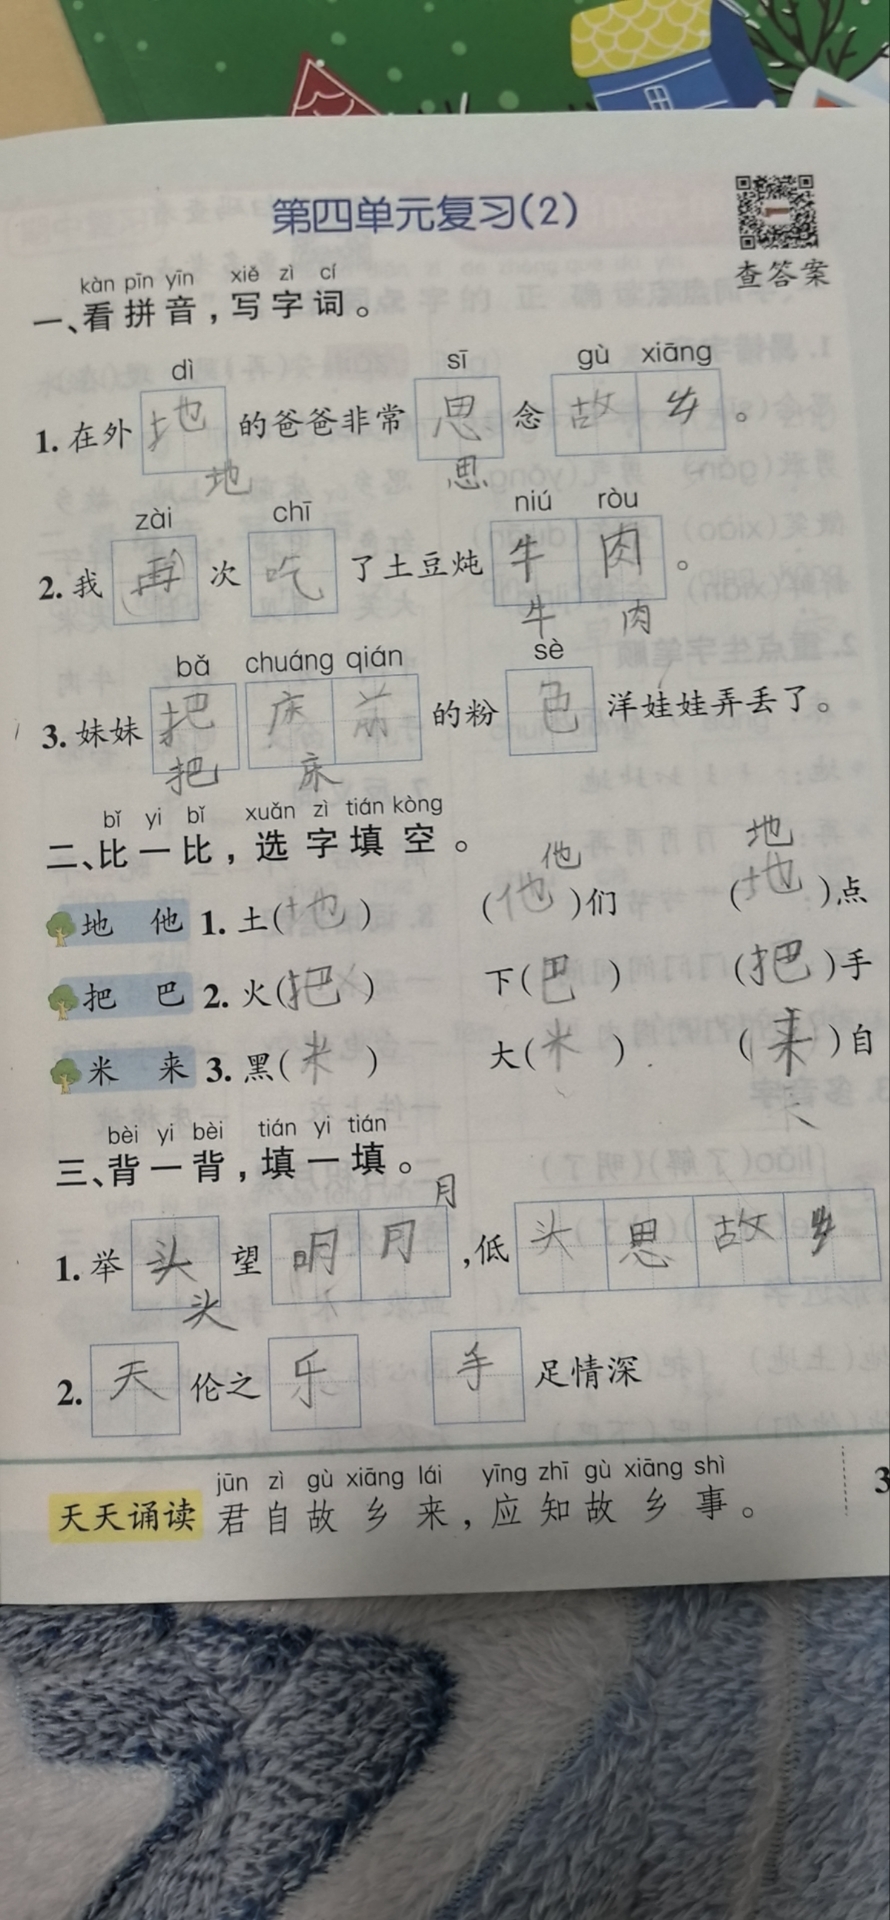 第四单元复习(2)
查答案
kàn pīn yīn xiě zì cí
一、看拼音，写字词。
dì sī gù xiāng
1. 在外地的爸爸非常思念故乡。
地 思
zài chī niú ròu
2. 我再次吃了土豆炖牛肉。
牛 肉
bǎ chuáng qián sè
3. 妹妹把床前的粉色洋娃娃弄丢了。
把 床
bǐ yi bǐ xuǎn zì tián kòng
二、比一比，选字填空。
他 地
地 他 1. 土(地) (他)们 (地)点
把 巴 2. 火(把) 下(巴) (把)手
米 来 3. 黑(米) 大(米) (来)自
bèi yi bèi tián yi tián
三、背一背，填一填。
月
1. 举头望明月，低头思故乡
头
2. 天伦之乐 手足情深
jūn zì gù xiāng lái yīng zhī gù xiāng shì
天天诵读 君自故乡来，应知故乡事。
3